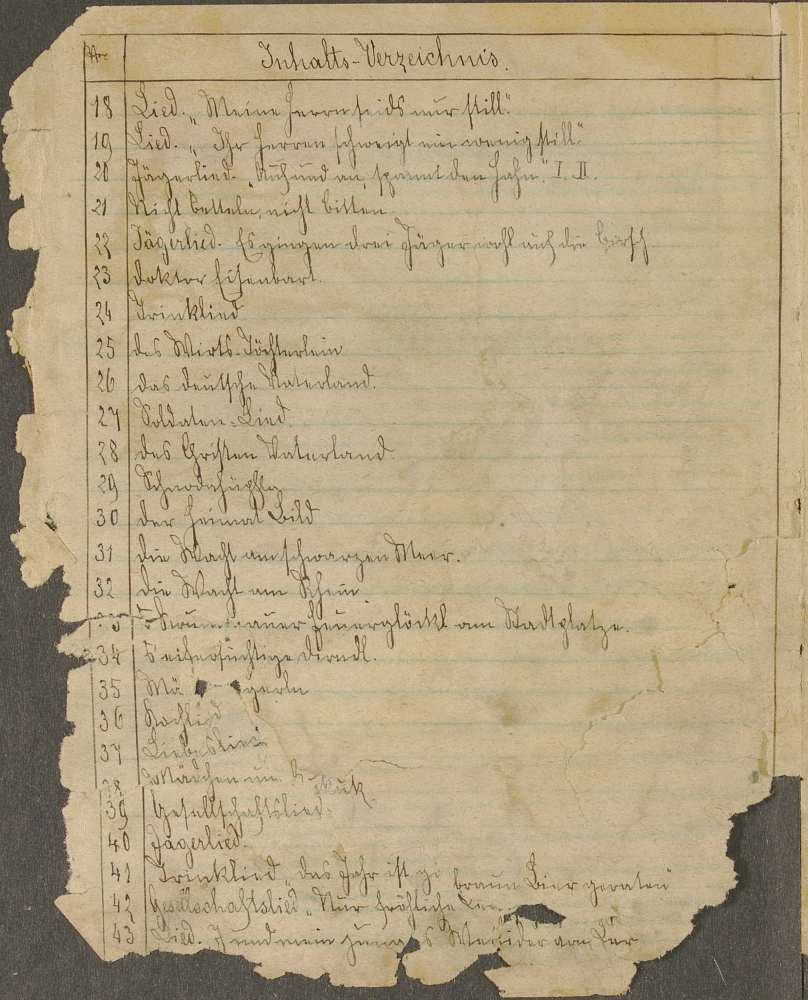 Nro Inhalts-Verzeichnis.
18 Lied. „Meine Herrn seids nur still."
19 Lied. „Ihr Herren schweigt ein wenig still."
20 Jägerlied. „Auf und an, spannt den Hahn." I. II.
21 Nicht betteln, nicht bitten
22 Jägerlied. Es gingen drei Jäger wohl auf die birsch
23 Doktor Eisenbart.
24 Trinklied
25 des Wirts-Töchterlein
26 das deutsche Vaterland.
27 Soldaten-Lied.
28 des Christen Vaterland.
29
30 der Heimat Bild
31 die Wacht am schwarzen Meer.
32 die Wacht am Rhein
3 's auer Feuerglöckl am Stadtplatze.
34 's eifersüchtige Dirndl.
35 Mä gerln
36 Kochlied
37 Liebeslied
38 Mädchen und kuk
39 Gesellschaftslied.
40 Jägerlied.
41 Trinklied „das Jahr ist gu braun Bier geraten"
42 Gesellschaftslied „Nur fröhliche
43 Lied. I und mein